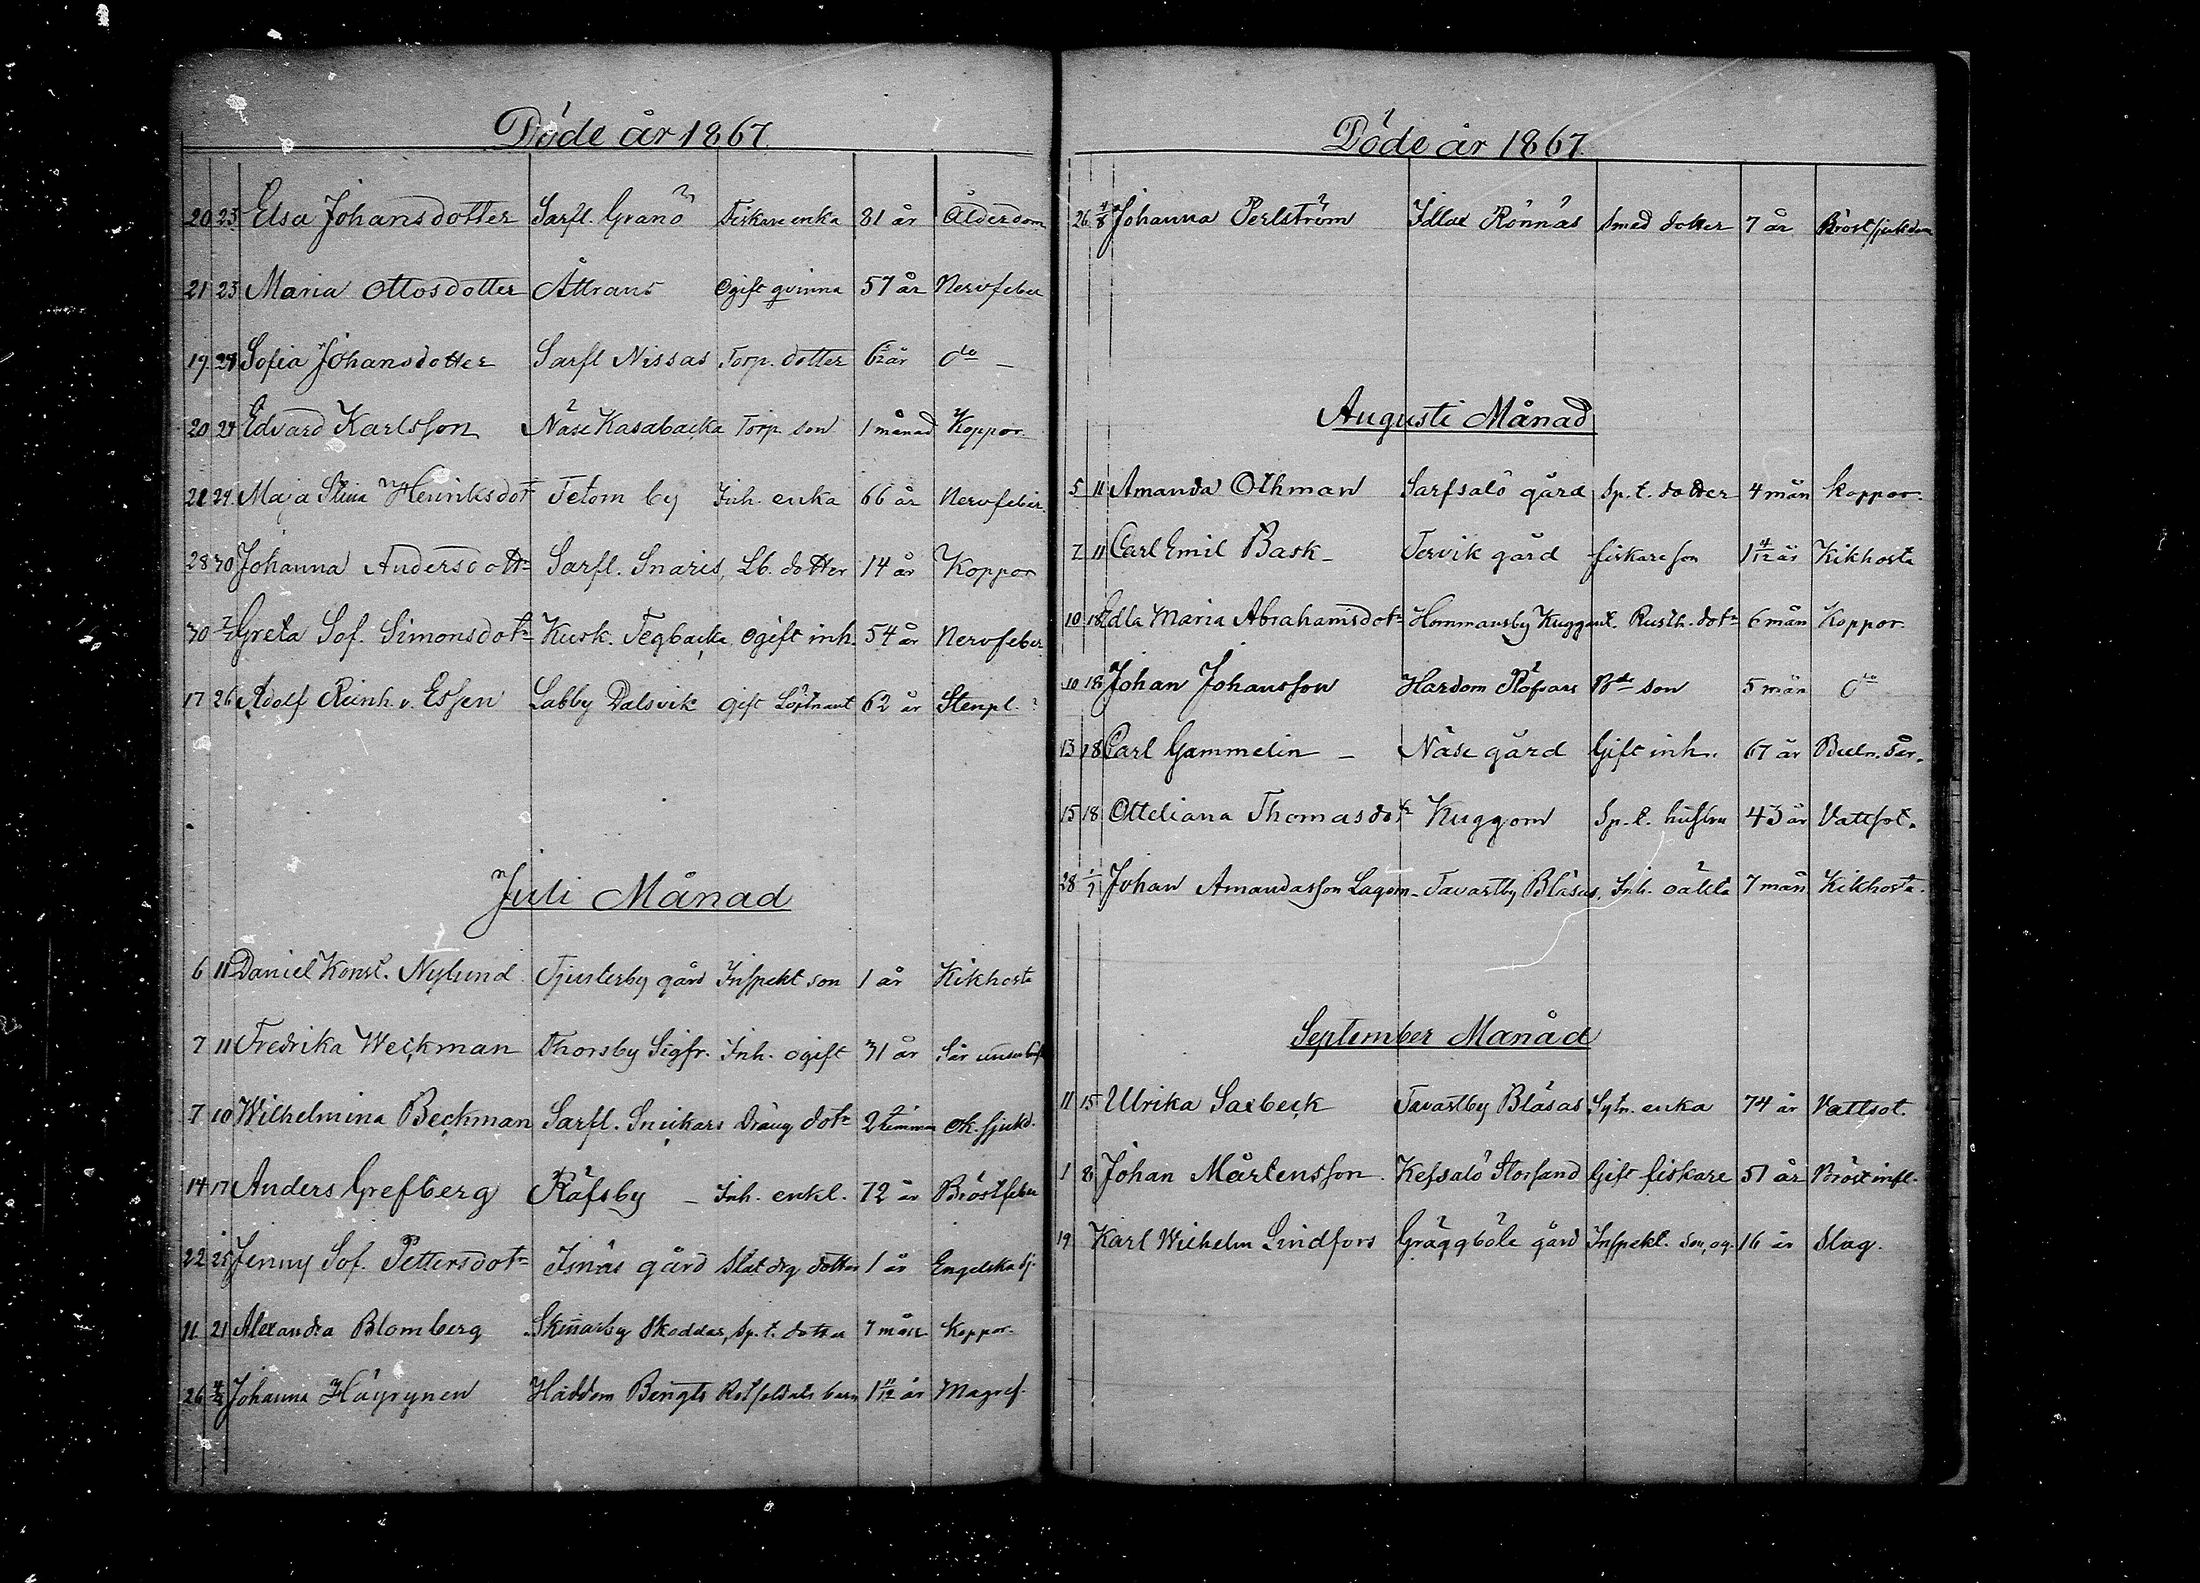 Döde år 1867
20 23 Elsa Johansdotter Sarfl. Granö Fiskare enka 81 år Ålderdom
21 23 Maria Ottosdotter Åttrans Ogift qvinna 57 år Nervfeber
19 Sofia Johansdotter Sarfl Nissas Torp. dotter år do
20 Edvard Karlsson Näse Kasabacka Torp son 1 månad Koppor
24 Maja Stina Henriksdotr Tetom by Inh. enka 66 år Nervfeber
28 30 Johanna Andersdottr Sarfl. Snaris, Lb. dotter 14 år Koppor
30 Greta Sof. Simonsdotr Kusk. Tegbacka ogift inh. 54 år Nervfeber
17 26 Adolf Reinh. v. Essen Labby Dalsvik gift Löjtnant 62 år Stenpl.
Juli Månad
6 11 Daniel Konst. Nylund Tjusterby gård Inspekt son 1 år Kikhosta
7 11 Fredrika Weckman Thorsby Sigfr. Inh. ogift 31 år Sår
7 10 Wilhelmina Beckman Sarfl. Snickars Dräng dotr 2 timmar ok. sjukd.
14 17 Anders Grefberg Räfsby Inh. enkl. 72 år Bröstfeber
22 25 Jenny Sof. Pettersdotr Isnäs gård Stat drg dotter 1 år Engelska sj.
11 21 Alexandra Blomberg Skinnarby Skoddar, Sp. t. dotter 7 mån Koppor
26 4/8 Johanna Häyrynen Häddom Bengts barn 1 11/12 år Magref.
Döde år 1867
26 4/8 Johanna Perlström Rönnäs Smed dotter 7 år Bröstsjukdom
Augusti Månad
5 11 Amanda Othman Sarfsalö gård Sp. t. dotter 4 mån Koppor
7 11 Carl Emil Bask Tervik gård fiskare son 1 4/12 år Kikhosta
10 18 Edla Maria Abrahamsdotr Hommansby Kuggas Rusth. dotr 6 mån Koppor
10 18 Johan Johansson Hardom Räfvars Bde son 5 mån do
13 18 Carl Gammelin Näse gård Gift inh. 67 år Buln. sår.
15 18 Otteliana Thomasdotr Kuggom Sp. t. hustru 43 år Vattsot.
28 Johan Amandasson Lagom Tavastby Bläsas, Inh. oäkta 7 mån Kikhosta.
September Månad
11 15 Ulrika Saxbeck Tavastby Bläsas Sytn. enka 74 år Vattsot.
1 8 Johan Mårtensson Kejsalö Storsand Gift fiskare 51 år Bröst infl.
19 Karl Wilhelm Lindfors Gräggböle gård Inspekt. son, og. 16 år Slag.